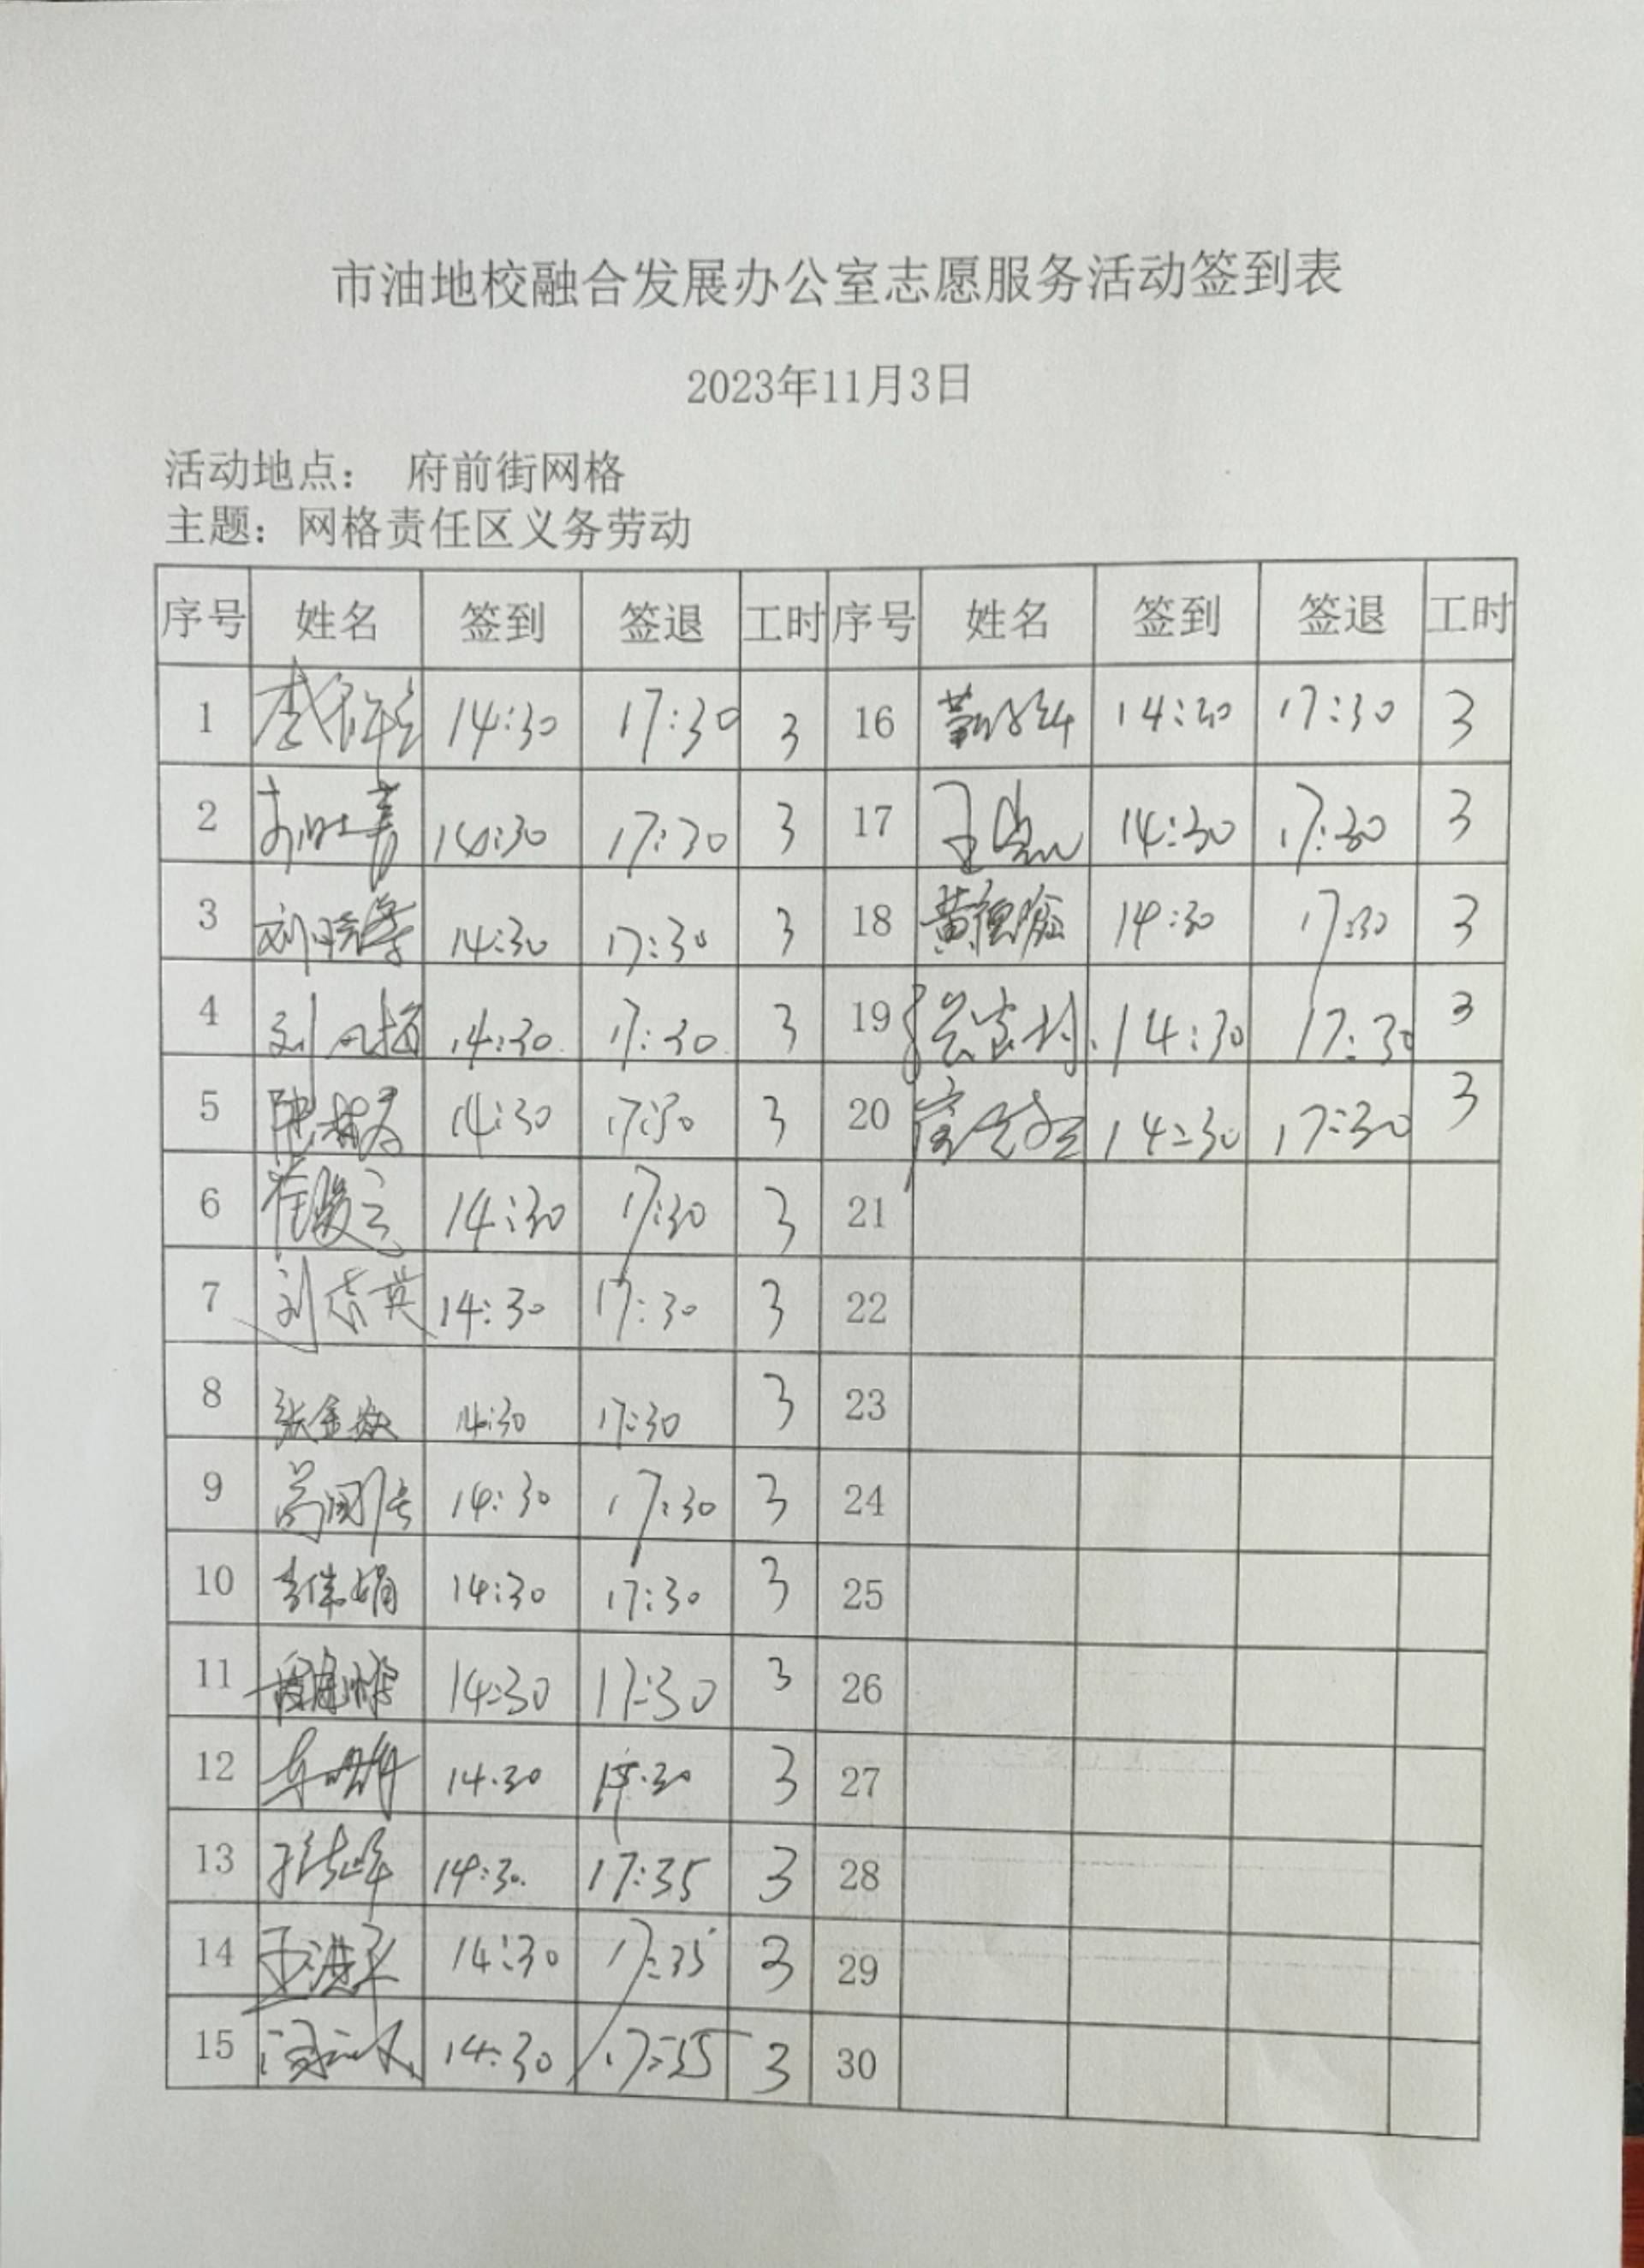 市油地校融合发展办公室志愿服务活动签到表
2023年11月3日
活动地点： 府前街网格
主题：网格责任区义务劳动
序号 姓名 签到 签退 工时 序号 姓名 签到 签退 工时
1 14:30 17:30 3 16 14:30 17:30 3
2 14:30 17:30 3 17 14:30 17:30 3
3 刘晓 14:30 17:30 3 18 黄 14:30 17:30 3
4 刘 14:30 17:30 3 19 14:30 17:30 3
5 14:30 17:30 3 20 14:30 17:30 3
6 崔俊云 14:30 17:30 3 21
7 刘志英 14:30 17:30 3 22
8 张金 14:30 17:30 3 23
9 14:30 17:30 3 24
10 李伟娟 14:30 17:30 3 25
11 14:30 17:30 3 26
12 14:30 :30 3 27
13 14:30 17:35 3 28
14 14:30 17:35 3 29
15 14:30 17:35 3 30